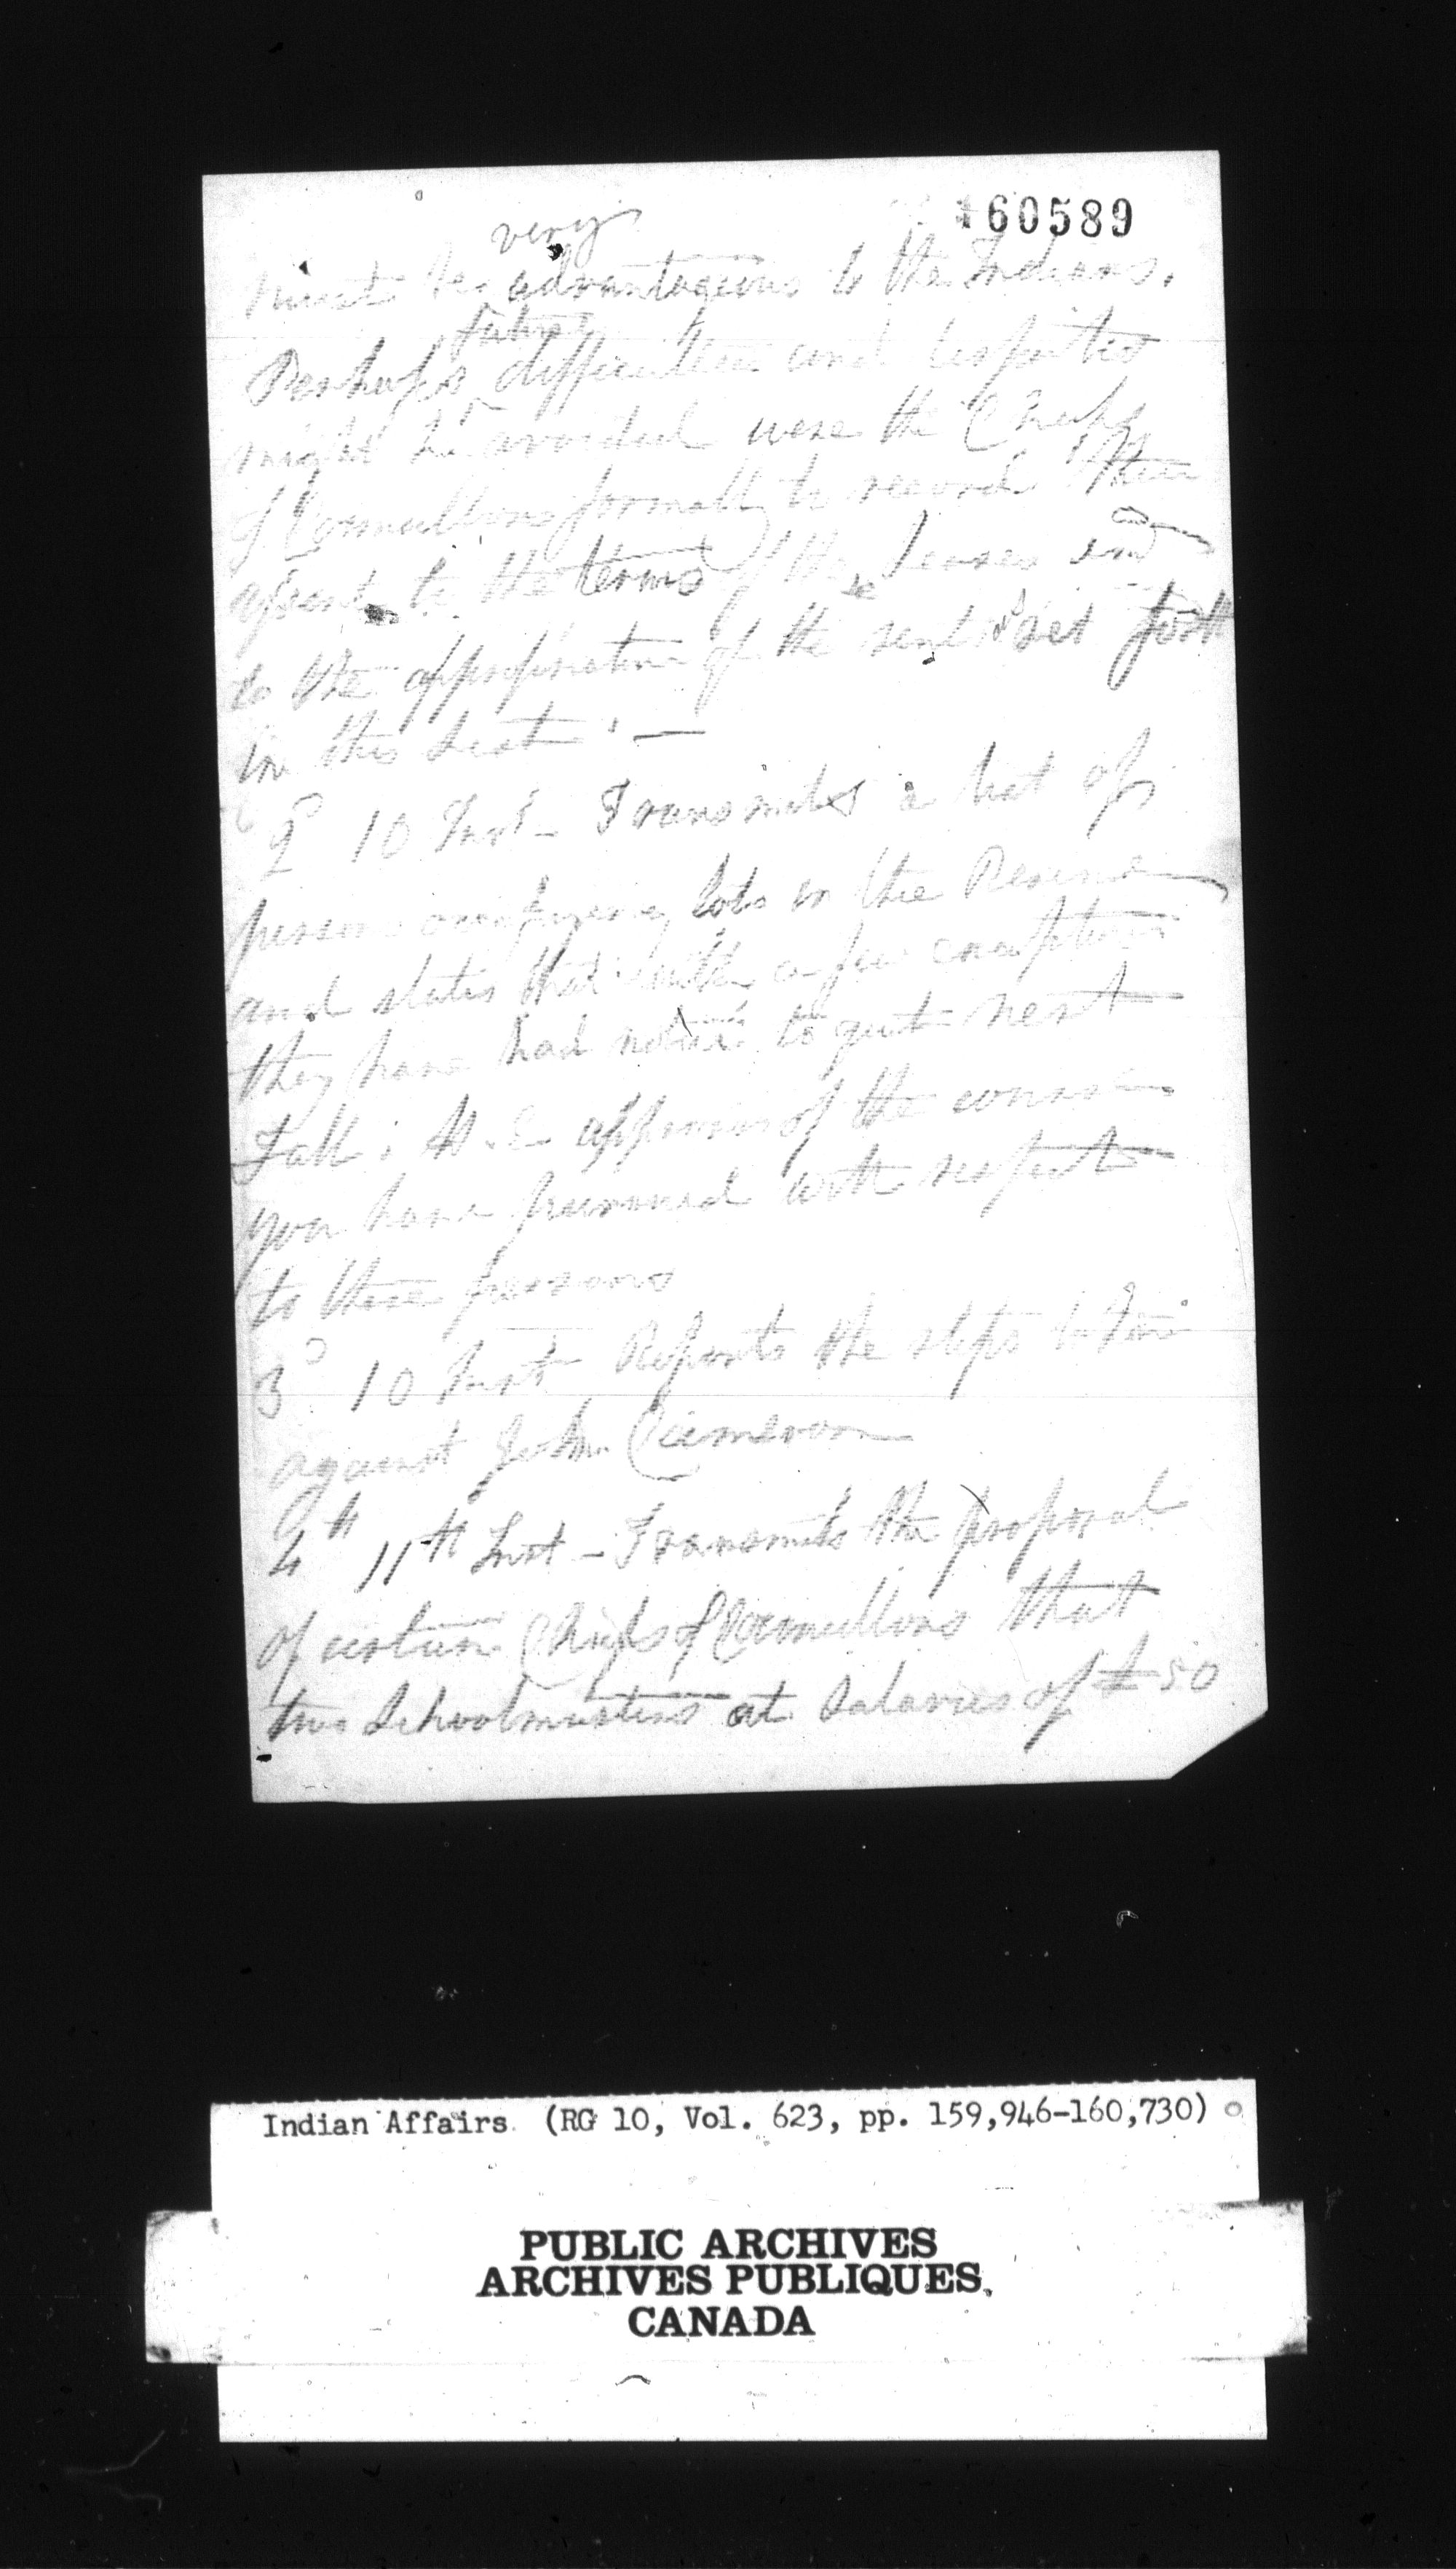 160589
very
must be advantageous to the Indians.
future
Perhaps difficulties and disputes
might be avoided were the Chiefs
of Councillors formally to record their
assent to the terms of these leases and
to the appropriation of the rents set forth
in this list. —
2d 10 Inst - Transmits a list of
persons occupying lots in the Reserve
and states that with a few exceptions
they have had notice to quit next
Fall; H.E. approves of the course
you have pursued with respect
to these persons
3d 10 Inst Reports the steps taken
against John Cameron
4th 11th Inst - Transmits the proposal
of certain Chiefs & Councillors that
two Schoolmasters at Salaries of £50
Indian Affairs. (RG 10, Vol. 623, pp. 159,946-160,730)
PUBLIC ARCHIVES
ARCHIVES PUBLIQUES
CANADA